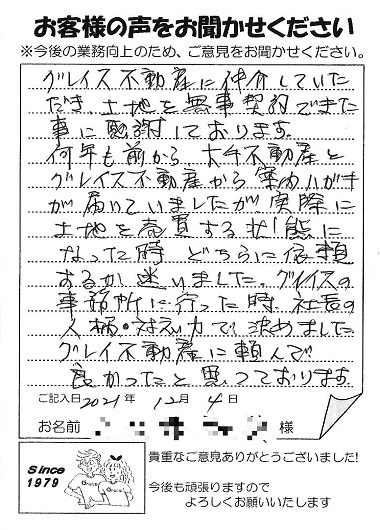 お客様の声をお聞かせください
※今後の業務向上のため、ご意見をお聞かせください。
グレイス不動産に仲介していた
だき、土地を無事契約できた
事に感謝しております。
何年も前から、大手不動産と
グレイス不動産から案内ハガキ
が届いていましたが実際に
土地を売買する状態に
なった時 どちらに依頼
するか迷いました。グレイスの
事務所に行った時、社長の
人柄・対応力で決めました
グレイス不動産に頼んで
良かったと思っております。
ご記入日 2021年 12月 4日
お名前 様
Since
1979
Grace
Grace
貴重なご意見ありがとうございました!
今後も頑張りますので
よろしくお願いいたします